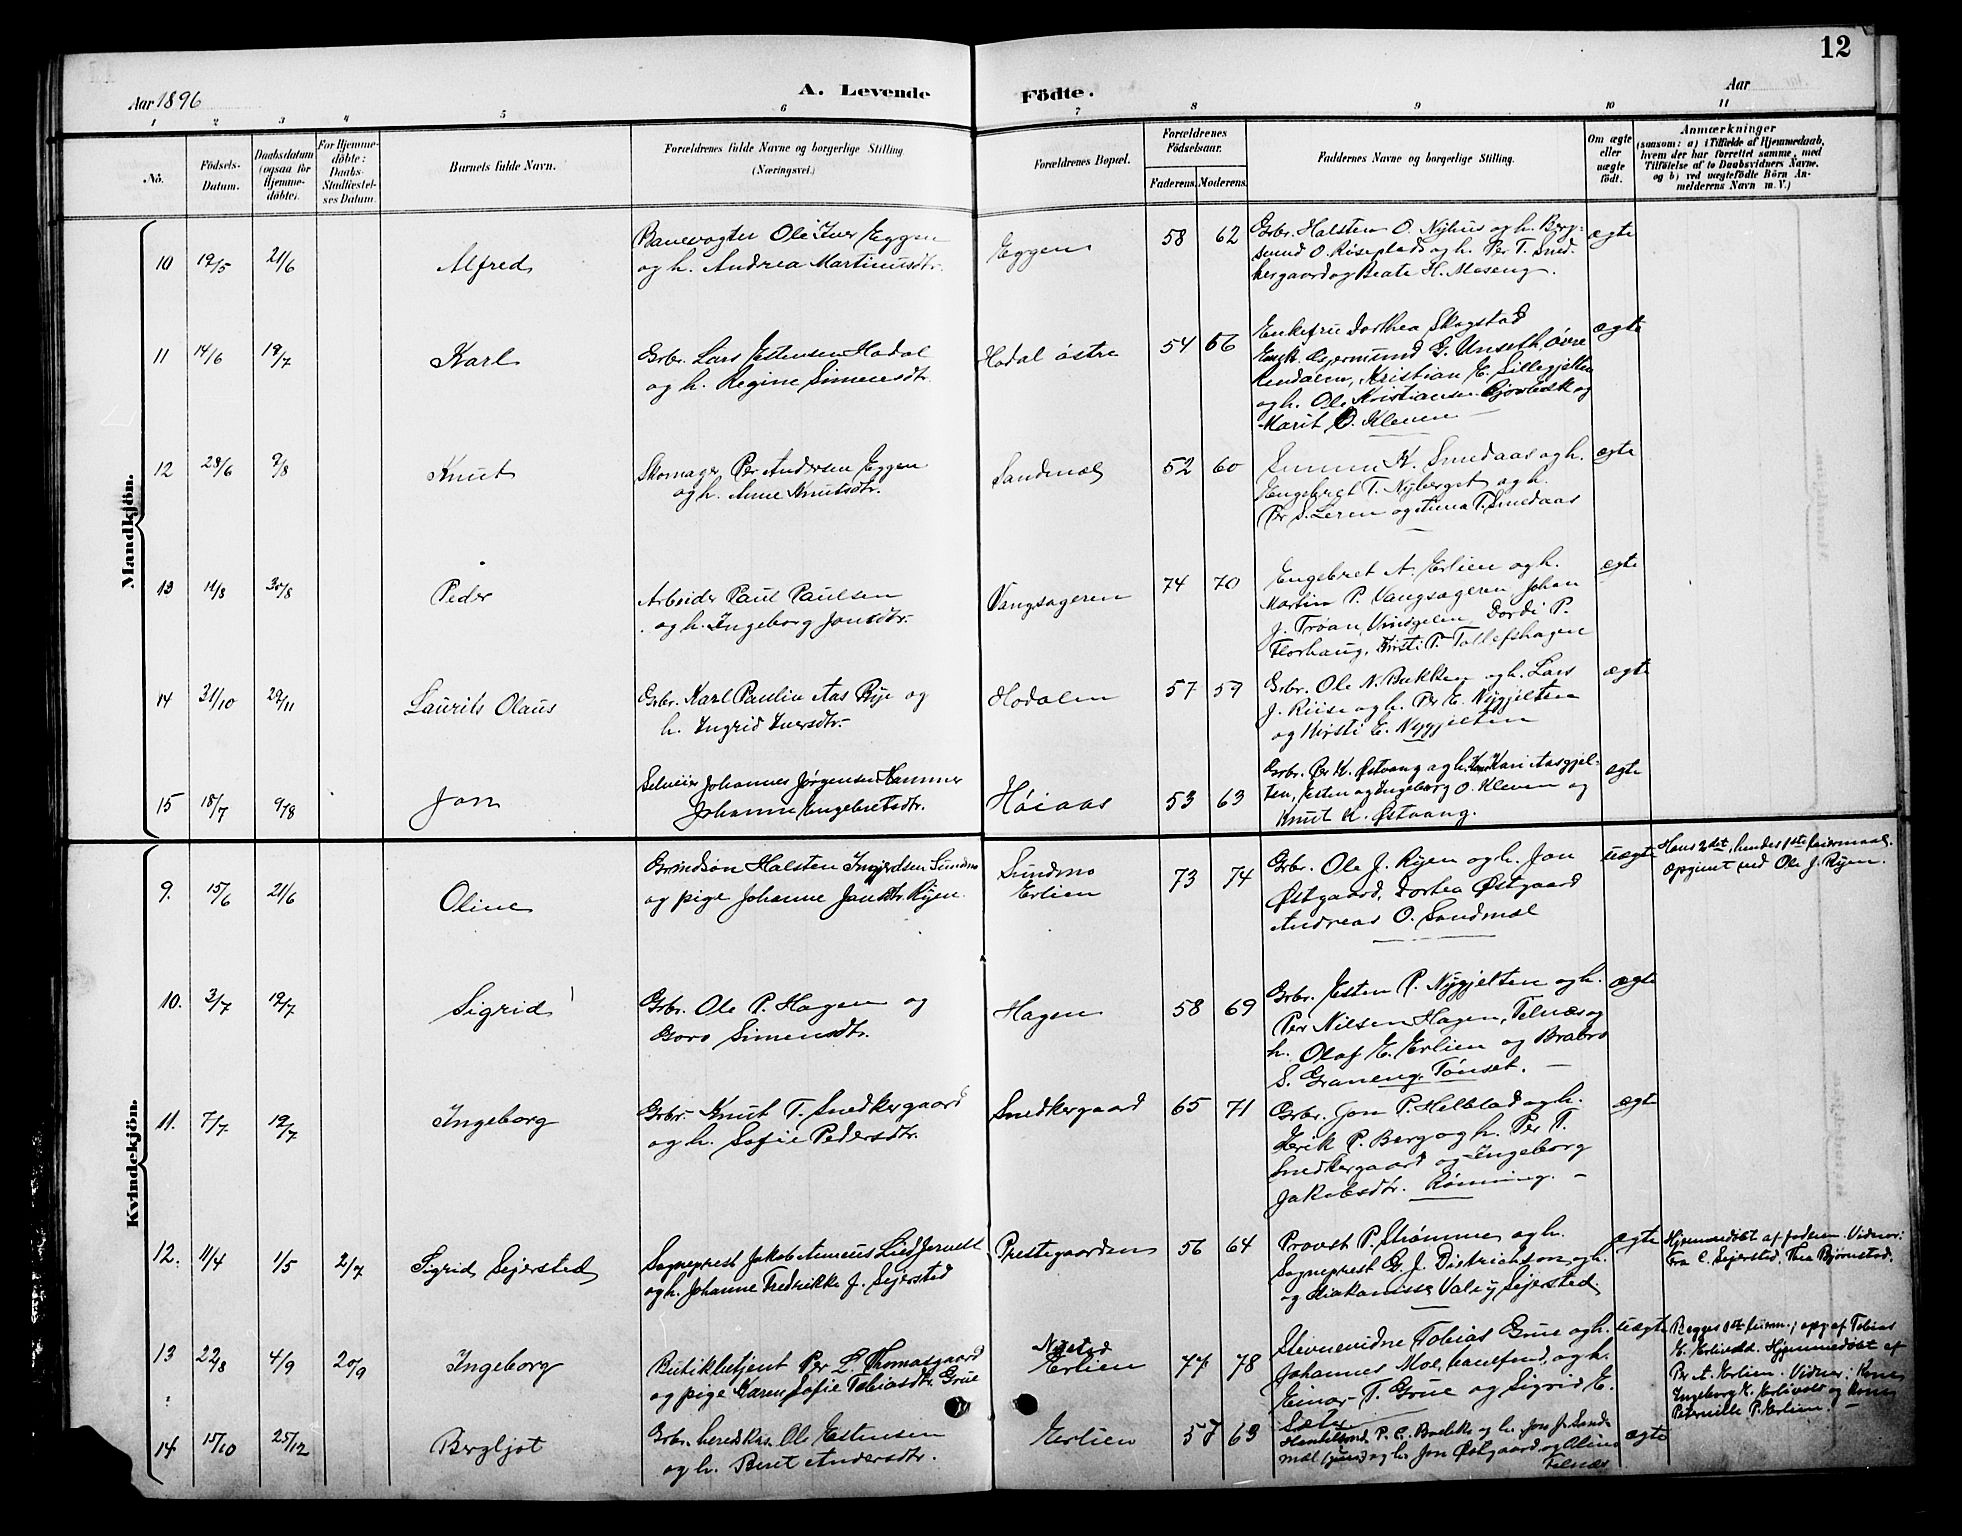 12
Aar 1896
A. Levende
Födte.
Aar
1 2 3 4 5 6 7 8 9 10 11
No.
Födsels-
Datum.
Daabsdatum
(ogsaa for
Hjemme-
døbte).
For Hjemme-
döbte:
Daabs-
Stadfæstel-
ses Datum.
Barnets fulde Navn.
Forældrenes fulde Navne og borgerlige Stilling
(Næringsvei.)
Forældrenes Bopæl.
Forældrenes
Födselsaar.
Faderens. Moderens.
Faddernes Navne og borgerlige Stilling.
Om ægte
eller
uægte
födt.
Anmærkninger
(saasom: a) i Tilfælde af Hjemmedaab,
hvem der har forrettet samme, med
Tilföielse af to Daabsvidners Navne,
og b) ved uægtefödte Börn An-
melderens Navn m. V.)
Mandkjön.
10 19/5 21/6 Alfred
Banevogter Ole Iver Eggen
og h. Andrea Martinusdtr.
Eggen 58 62
Grbr. Halsten O. Nyhus og h. Berg-
sund O. Riseplads og h. Per T. Sned-
kergaard og Beate H. Moseng.
ægte
11 14/6 19/7 Karl
Grbr. Lars Estensen Hodal
og h. Regine Simensdtr.
Hodal østre 54 56
Enkefru Dorthea Skogstad
Gjermund G. Unseth, øvre
Rendalen, Kristian E. Sillegjelten
og h. Ole Kristiansen og
Marit O. Kleven
ægte
12 28/6 9/8 Knut
Skomager Per Andersen Eggen
og h. Anne Knutsdtr.
Sandmæl 52 60
Simen K. Smedaas og h.
Engebret T. Nyberget og h.
Per S. Leren og Anna T. Smedaas
ægte
13 11/8 30/8 Peder
Arbeider Paul Paulsen
og h. Ingeborg Jonsdtr.
Vangsageren 74 70
Engebret A. Erlien og h.
Martin P. Vangsageren Johan
J. Trøan, Vingelen, Dordi P.
Florhaug, Kirsti P. Tollefshagen
ægte
14 31/10 29/11 Laurits Olaus
Grbr. Karl Paulin Aas Bye og
h. Ingrid Iversdtr.
Hodalen 57 59
Grbr. Ole N. Bakken og h. Lars
J. Riise og h. Per E. Nygjelten
og Kirsti E. Nygjelten
ægte
15 18/7 9/8 Jon
Selveier Johannes Jørgensen Hammer
Johanne Engebretsdtr.
Høiaas 53 63
Grbr. Per K. Østvang og h. Kari Aasgjel-
ten, Esten og Ingeborg O. Kleven og
Knut K. Østvang.
ægte
Kvindekjön.
9. 15/6 21/6 Oline
Halsten Ingerdsen Sundmo
og pige Johanne Jonsdtr. Ryen.
Sundmo
Erlien
73 74
Grbr. Ole J. Ryen og h. Jon
Østgaard, Dorhea Østgaard
Andreas O. Sandmæl
uægte
Hans 2det, hendes 1ste leiermaal,
opgivet ved Ole J. Ryen.
10. 3/7 19/7 Sigrid
Grbr. Ole P. Hagen og
Goro Simensdtr.
Hagen 58 69
Grbr. Esten P. Nygjelten og h.
Per Nilsen Hagen, Telnæs og
h. Olaf E. Erlien og Brabro
S. Graneng, Tønset.
ægte
11. 7/7 19/7 Ingeborg
Grbr. Knut T. Snedkergaard
og h. Sofie Pedersdtr.
Snedkergaard 65 71
Grbr. Jon P. Helblad og h.
Erik P. Berg og h. Per T.
Snedkergaard og Ingeborg
Jakobsdtr. Rønning.
ægte
12. 11/4 1/5 2/7 Sigrid Sejersted
Sogneprest Jakob Lied Jervell
og h. Johanne Fredrikke J. Sejersted
Prestegaarden 56 64
Provst P. Strømme og h.
Sogneprest G. J. Dietrichson og h.
og diakonisse Valey Sejersted.
ægte
Hjemmedøbt af faderen. Vidner:
Fra C. Sejersted, Thea Bjørnstad.
13 22/8 4/9 20/9 Ingeborg
Butikbetjent Per L. Thomasgaard
og pige Karen Sofie Tobiasdtr. Grue
Nysted
Erlien
77 78
Stevnevidne Tobias Grue og h.
Johannes Moe, banefmd. og h.
Einar T. Grue og Sigrid E.
Sæter
uægte
Begges 1ste leierm.; opg. af Tobias
E. Erlivold. Hjemmedøbt af
Per A. Erlien. Vidner: Kone
Ingeborg K. Erlivold og Kone
Pernille P. Erlien.
14 15/10 25/12 Bergljot
Grbr. heredkas. Ole Estensen
og h. Beret Andersdtr.
Erlien 57 63
Handelsmd. P. C. Bakke og h. Jon J. Sand-
mæl (jun) og h. Jon Østgaard og Oline
Telnæs
ægte